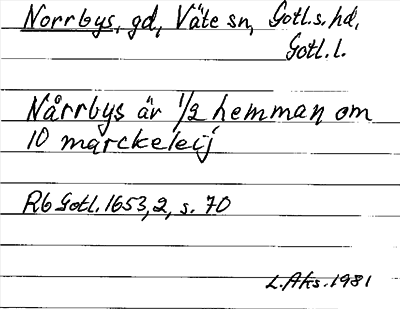 Norrbys, gd, Väte sn, Gotl.s.hd,
Gotl.l.
Nårrbys är 1/2 hemman om
10 marckeleij
Rb Gotl.1653,2, s. 70
L.Aks.1981